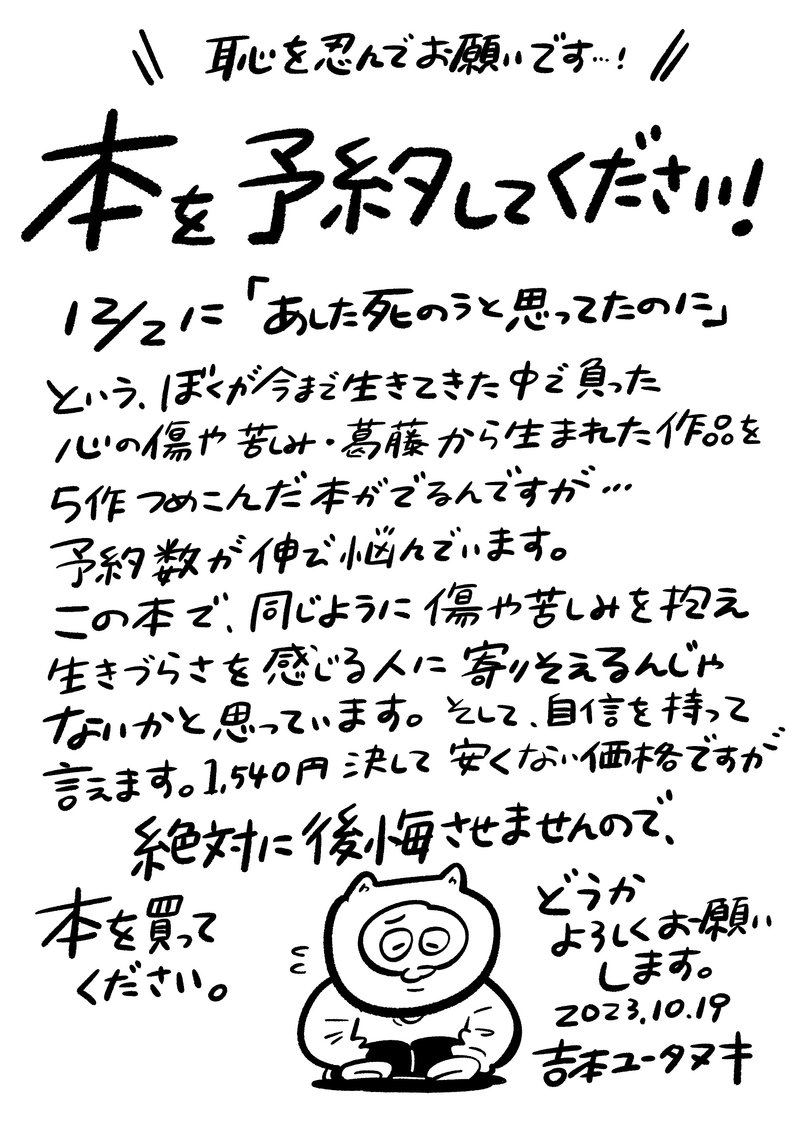 恥を忍んでお願いです…!
本を予約してください!
12/2に「あした死のうと思ってたのに」
という、ぼくが今まで生きてきた中で負った
心の傷や苦しみ・葛藤から生まれた作品を
5作つめこんだ本がでるんですが…
予約数が伸び悩んでいます。
この本で、同じように傷や苦しみを抱え
生きづらさを感じる人に寄りそえるんじゃ
ないかと思っています。そして、自信を持って
言えます。1,540円決して安くない価格ですが
絶対に後悔させませんので、
本を買って
ください。
どうか
よろしくお願い
します。
2023.10.19
吉本ユータヌキ